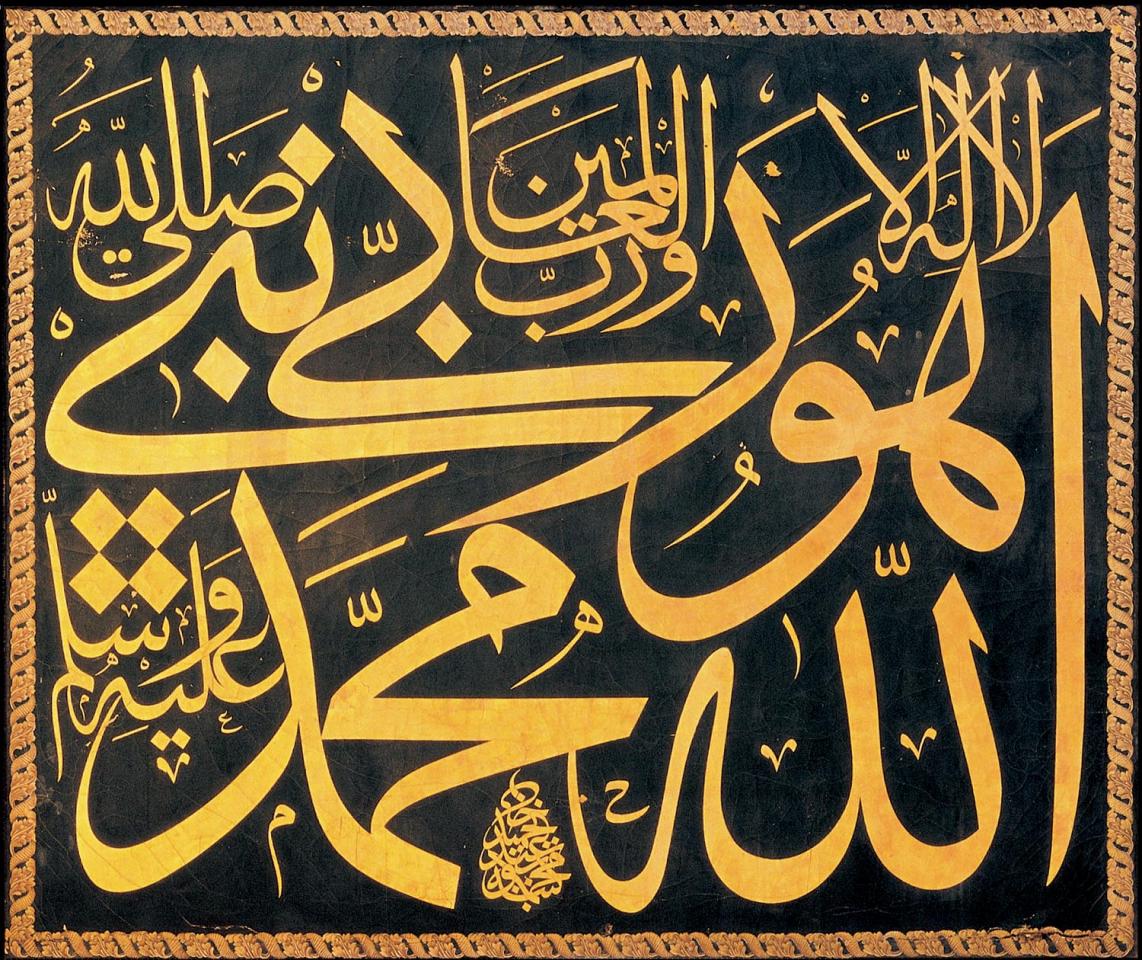 الله لا اله الا هو ربي ورب العالمين
محمد نبي صلى الله عليه وسلم